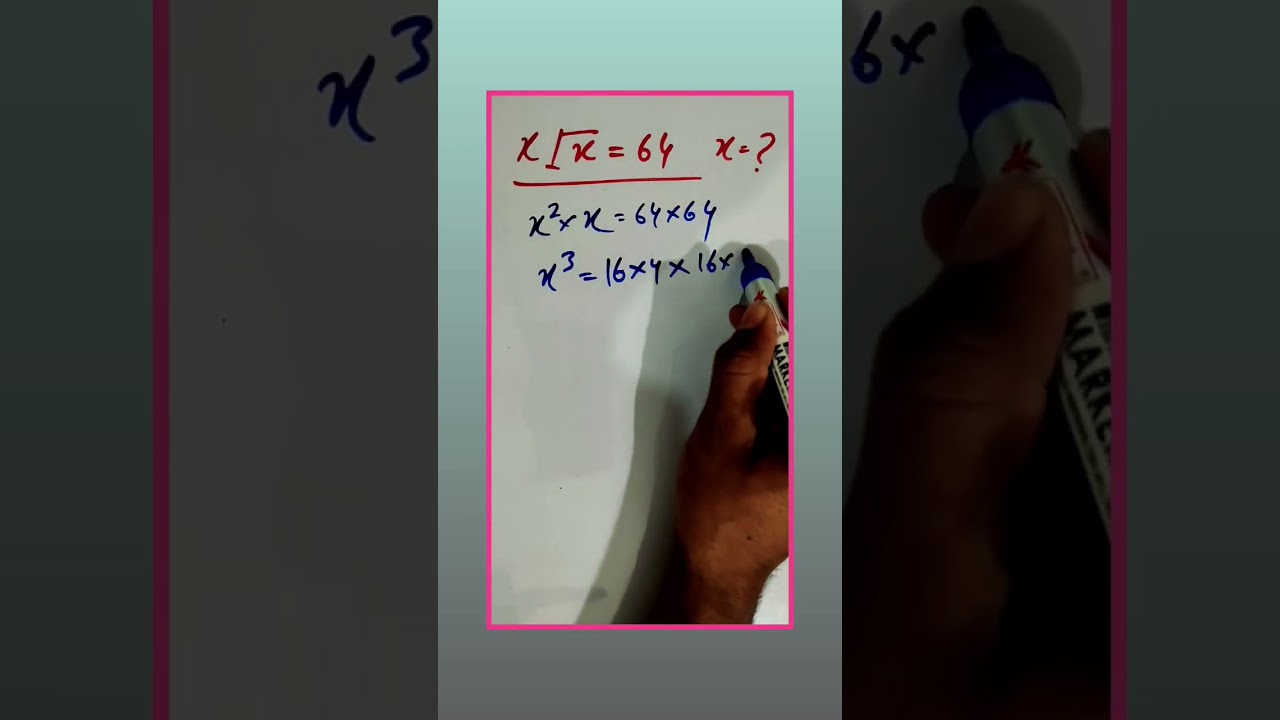 x√x = 64 x = ?
x² × x = 64 × 64
x³ = 16 × 4 × 16 ×
x³
6 ×
MARKE
MARKE